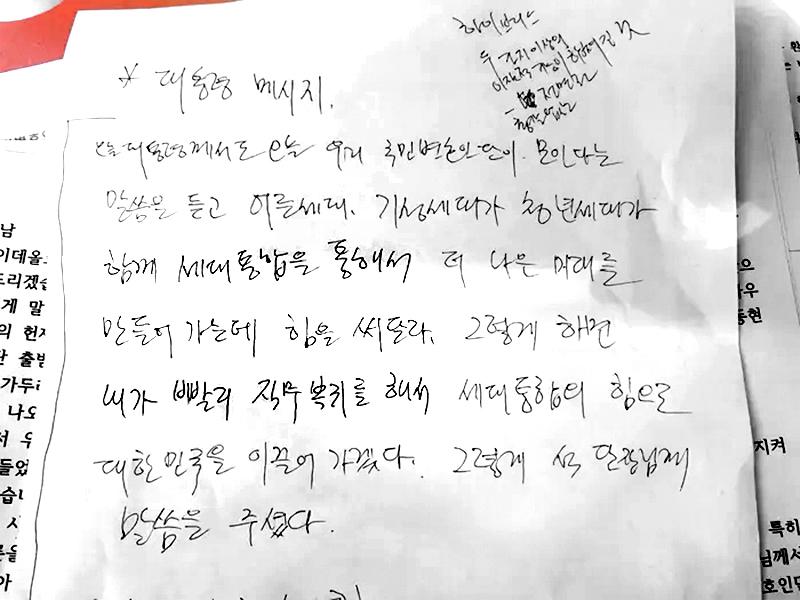 하이브리드
두 가지 이상의
이질적 기능이 합쳐진 것
전면전
* 대통령 메시지.
오늘 대통령께서도 오늘 우리 국민변호인단이 모인다는
말씀을 듣고 어른세대, 기성세대가 청년세대가
함께 세대통합을 통해서 더 나은 미래를
만들어 가는데 힘을 써달라. 그렇게 하면
내가 빨리 직무복귀를 해서 세대통합의 힘으로
대한민국을 이끌어 가겠다. 그렇게 석 단장님께
말씀을 주셨다.
남
이데올
드리겠습
게 말
의 헌자
단 출범
가두
나오
서 우
들었
습니
사
른을
아
으
우
동현
지켜
특히
님께서
호인단